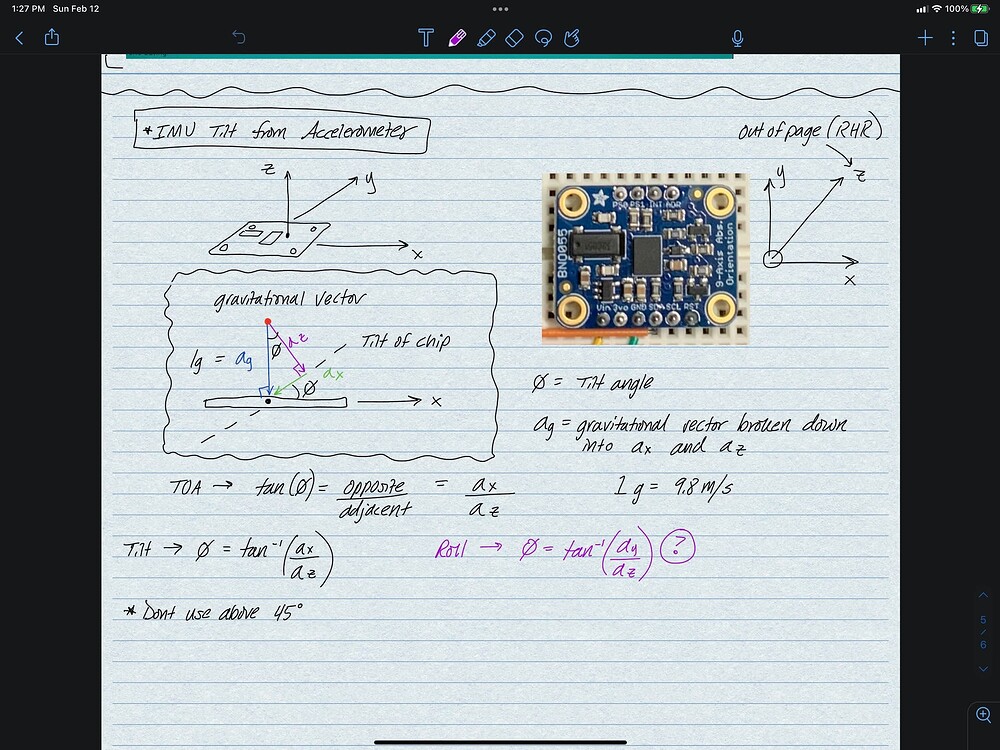 1:27 PM Sun Feb 12
100%
* IMU Tilt from Accelerometer
out of page (RHR)
z
y
x
y
z
x
PS0 PS1 INT ADR
BNO055
9-Axis Abs.
Orientation
Vin 3vo GND SDA SCL RST
gravitational vector
1g = ag
Ø
az
Tilt of chip
ax
Ø
x
Ø = Tilt angle
ag = gravitational vector broken down
into ax and az
TOA → tan(Ø) = opposite / adjacent = ax / az
1 g = 9.8 m/s
Tilt → Ø = tan⁻¹(ax / az)
Roll → Ø = tan⁻¹(ay / az) ?
* Dont use above 45°
5
/
6